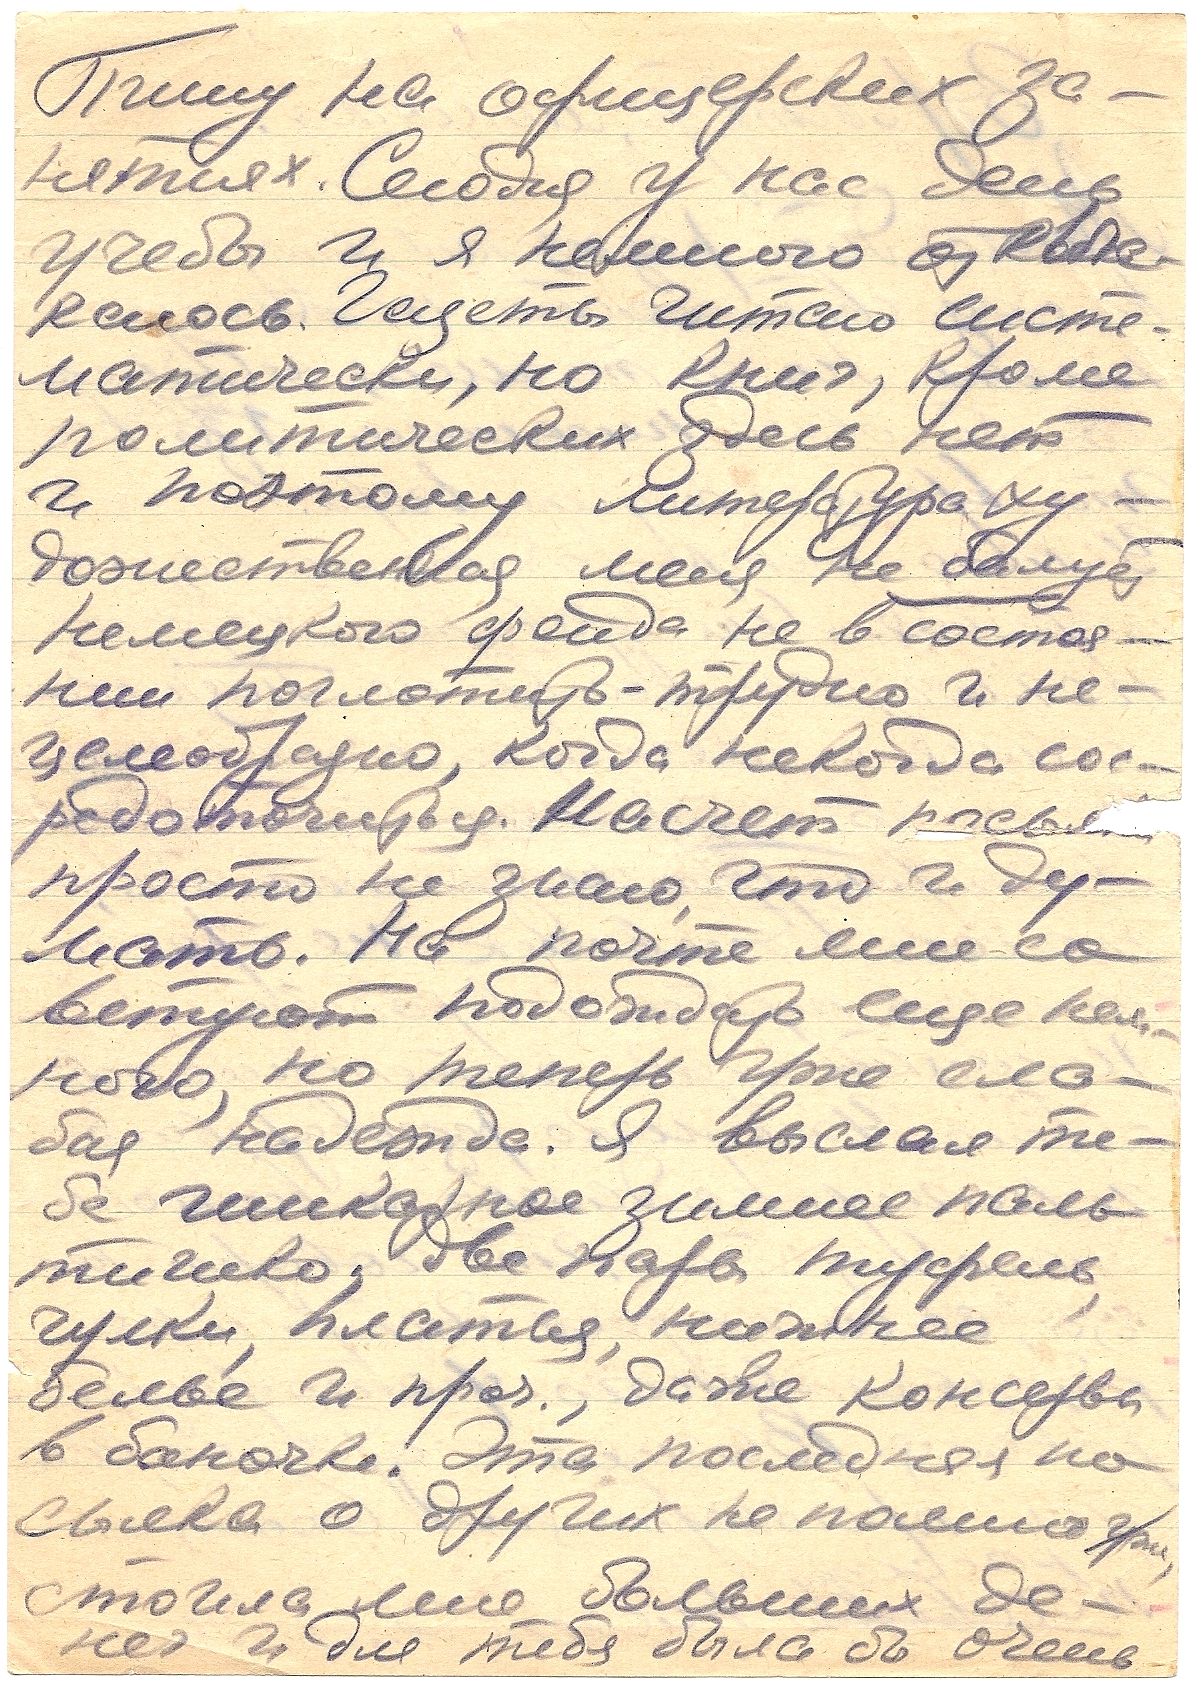 Пишу на офицерских за-
нятиях. Сегодня у нас день
учебы и я немного отвле-
каюсь. Газеты читаю систе-
матически, но книг, кроме
политических здесь нет
и поэтому литература ху-
дожественная меня не балует
Немецкого Фрейда не в состоя-
нии поглотить - трудно и не-
целеобразно, когда некогда сос-
редоточиться. Насчет посыл
просто не знаю, что и ду-
мать. На почте мне со
ветуют подождать еще нем-
ного, но теперь уже сла-
бая надежда. Я выслал те-
бе шикарное зимнее паль
тишко, две пары туфель,
чулки, платья, нижнее
белье и проч., даже консервы
в баночке. Эта последняя по
сылка о других не помню уже,
стоила мне больших де-
нег и для тебя была бы очень